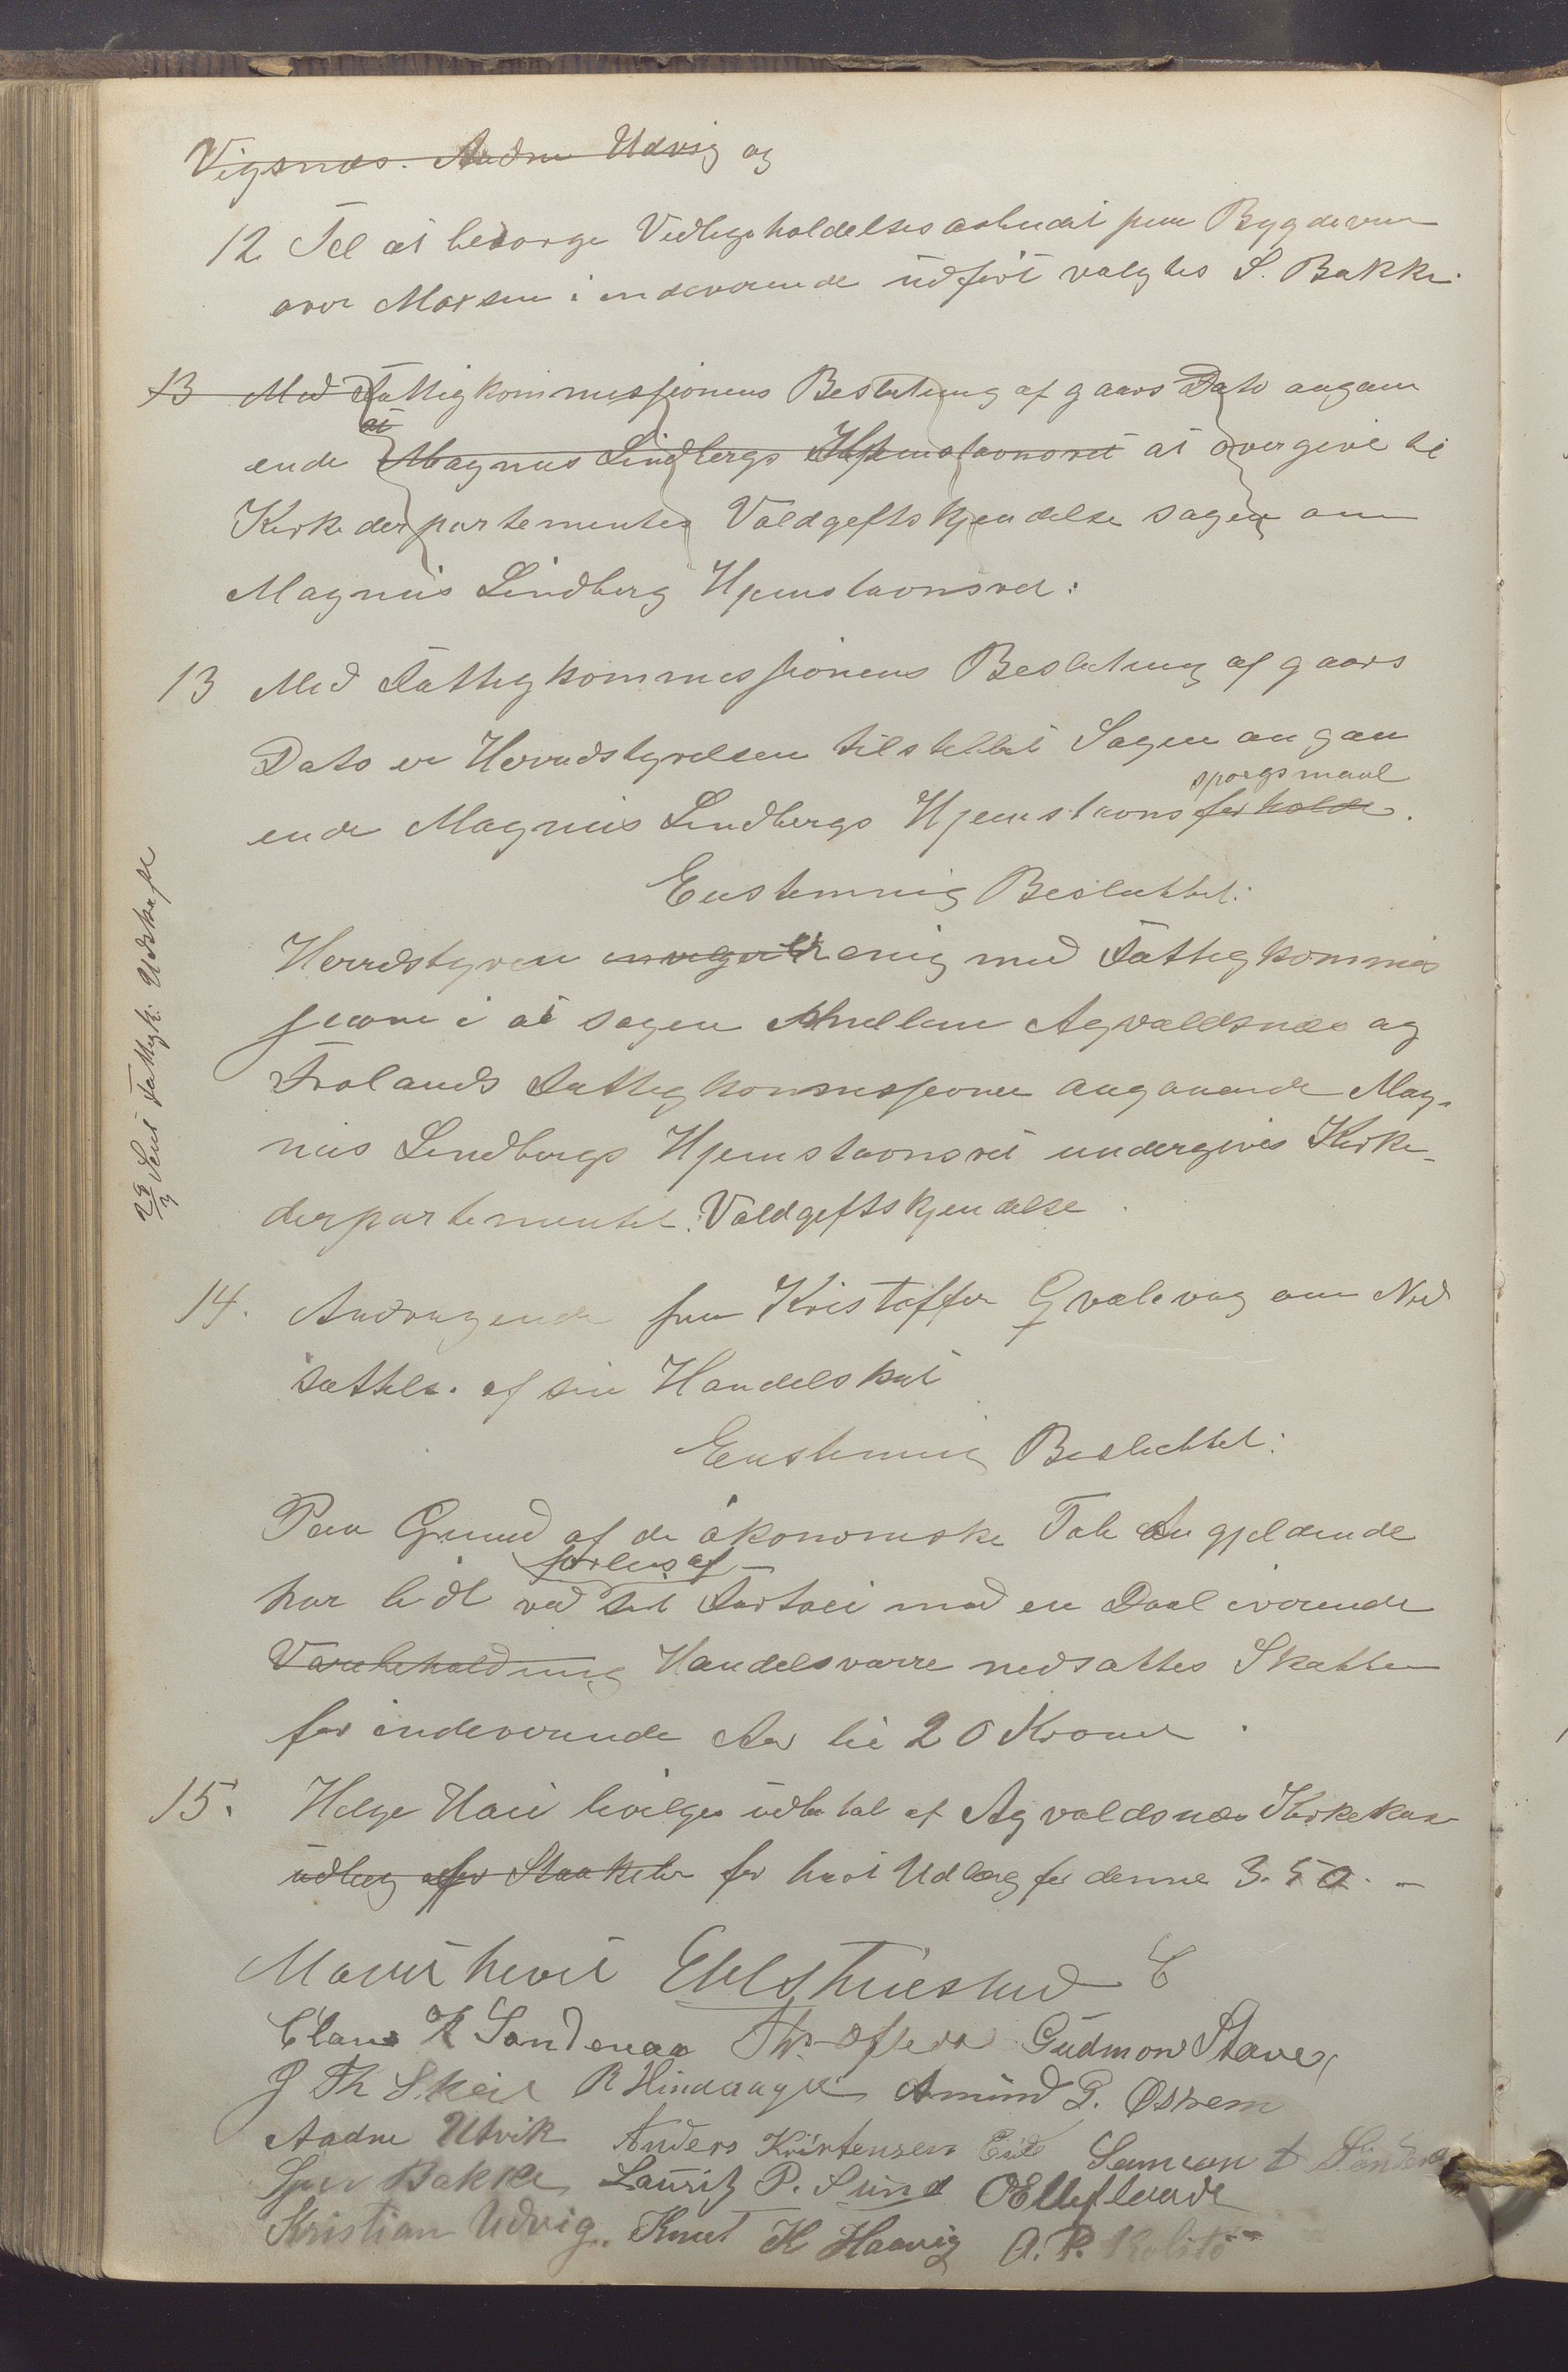 Vigsnæs. Aadne Udvig og
12 Tel at besørge Vedligeholdelsesarbeidet paa Bygdeveien
over Marsen i indeværende udført valgtes S. Bakke.
13 Med Fattigkommissionens Beslutning af gaars Dato angaa
at
ende Magnus Lindbergs Hjemstavnsret at overgive til
Kirkedepartementes Voldgiftskjendelse sagen om
Magnus Lindberg Hjemstavnsret:
13 Med Fattigkommissionens Beslutning af gaars
Dato er Herredstyrelsen tilstillet Sagen angaa
spørgsmaal
ende Magnus Lindbergs Hjemstavnsforholde.
Enstemmig Besluttet:
Herredstyret enig med Fattigkommis
sionen i at sagen Mellem Agvaldsnæs og
Frolands Fattigkommissioner angaaende Mag-
nus Lindbergs Hjemstavnsret undergives Kirke-
departementet Voldgiftskjendelse.
28/3 Sent Fattigk. Udskrift
14. Andragende fra Kristoffer Qvalevag om Ned
sættelse af sin Handelskat
Enstemmig Besluttet:
Paa Grund af de økonomiske Tab Angjeldende
forlis af
har lidt ved sit Fartøi med en Deel iværende
Varebeholdning Handelsvarre nedsattes Skatten
for indeværende Aar til 20 Kroner.
15. Helge Høie bevilges udbetalt af Agvaldsnæs Kirkekasse
udlæg for Staketer for havt Udlæg for denne 3.50.-
Mauritz Hevit
Claus K Sandenaa Gudmon Stave
J Th Skeie R Hindaager Amund G. Østrem
Aadne Utvik Anders Kristensen Eide Samson
Sjur Bakke Lauritz P. Sund O Elleflaadt
Kristian Udvig. Knut K Haavig A. P. Kolstø